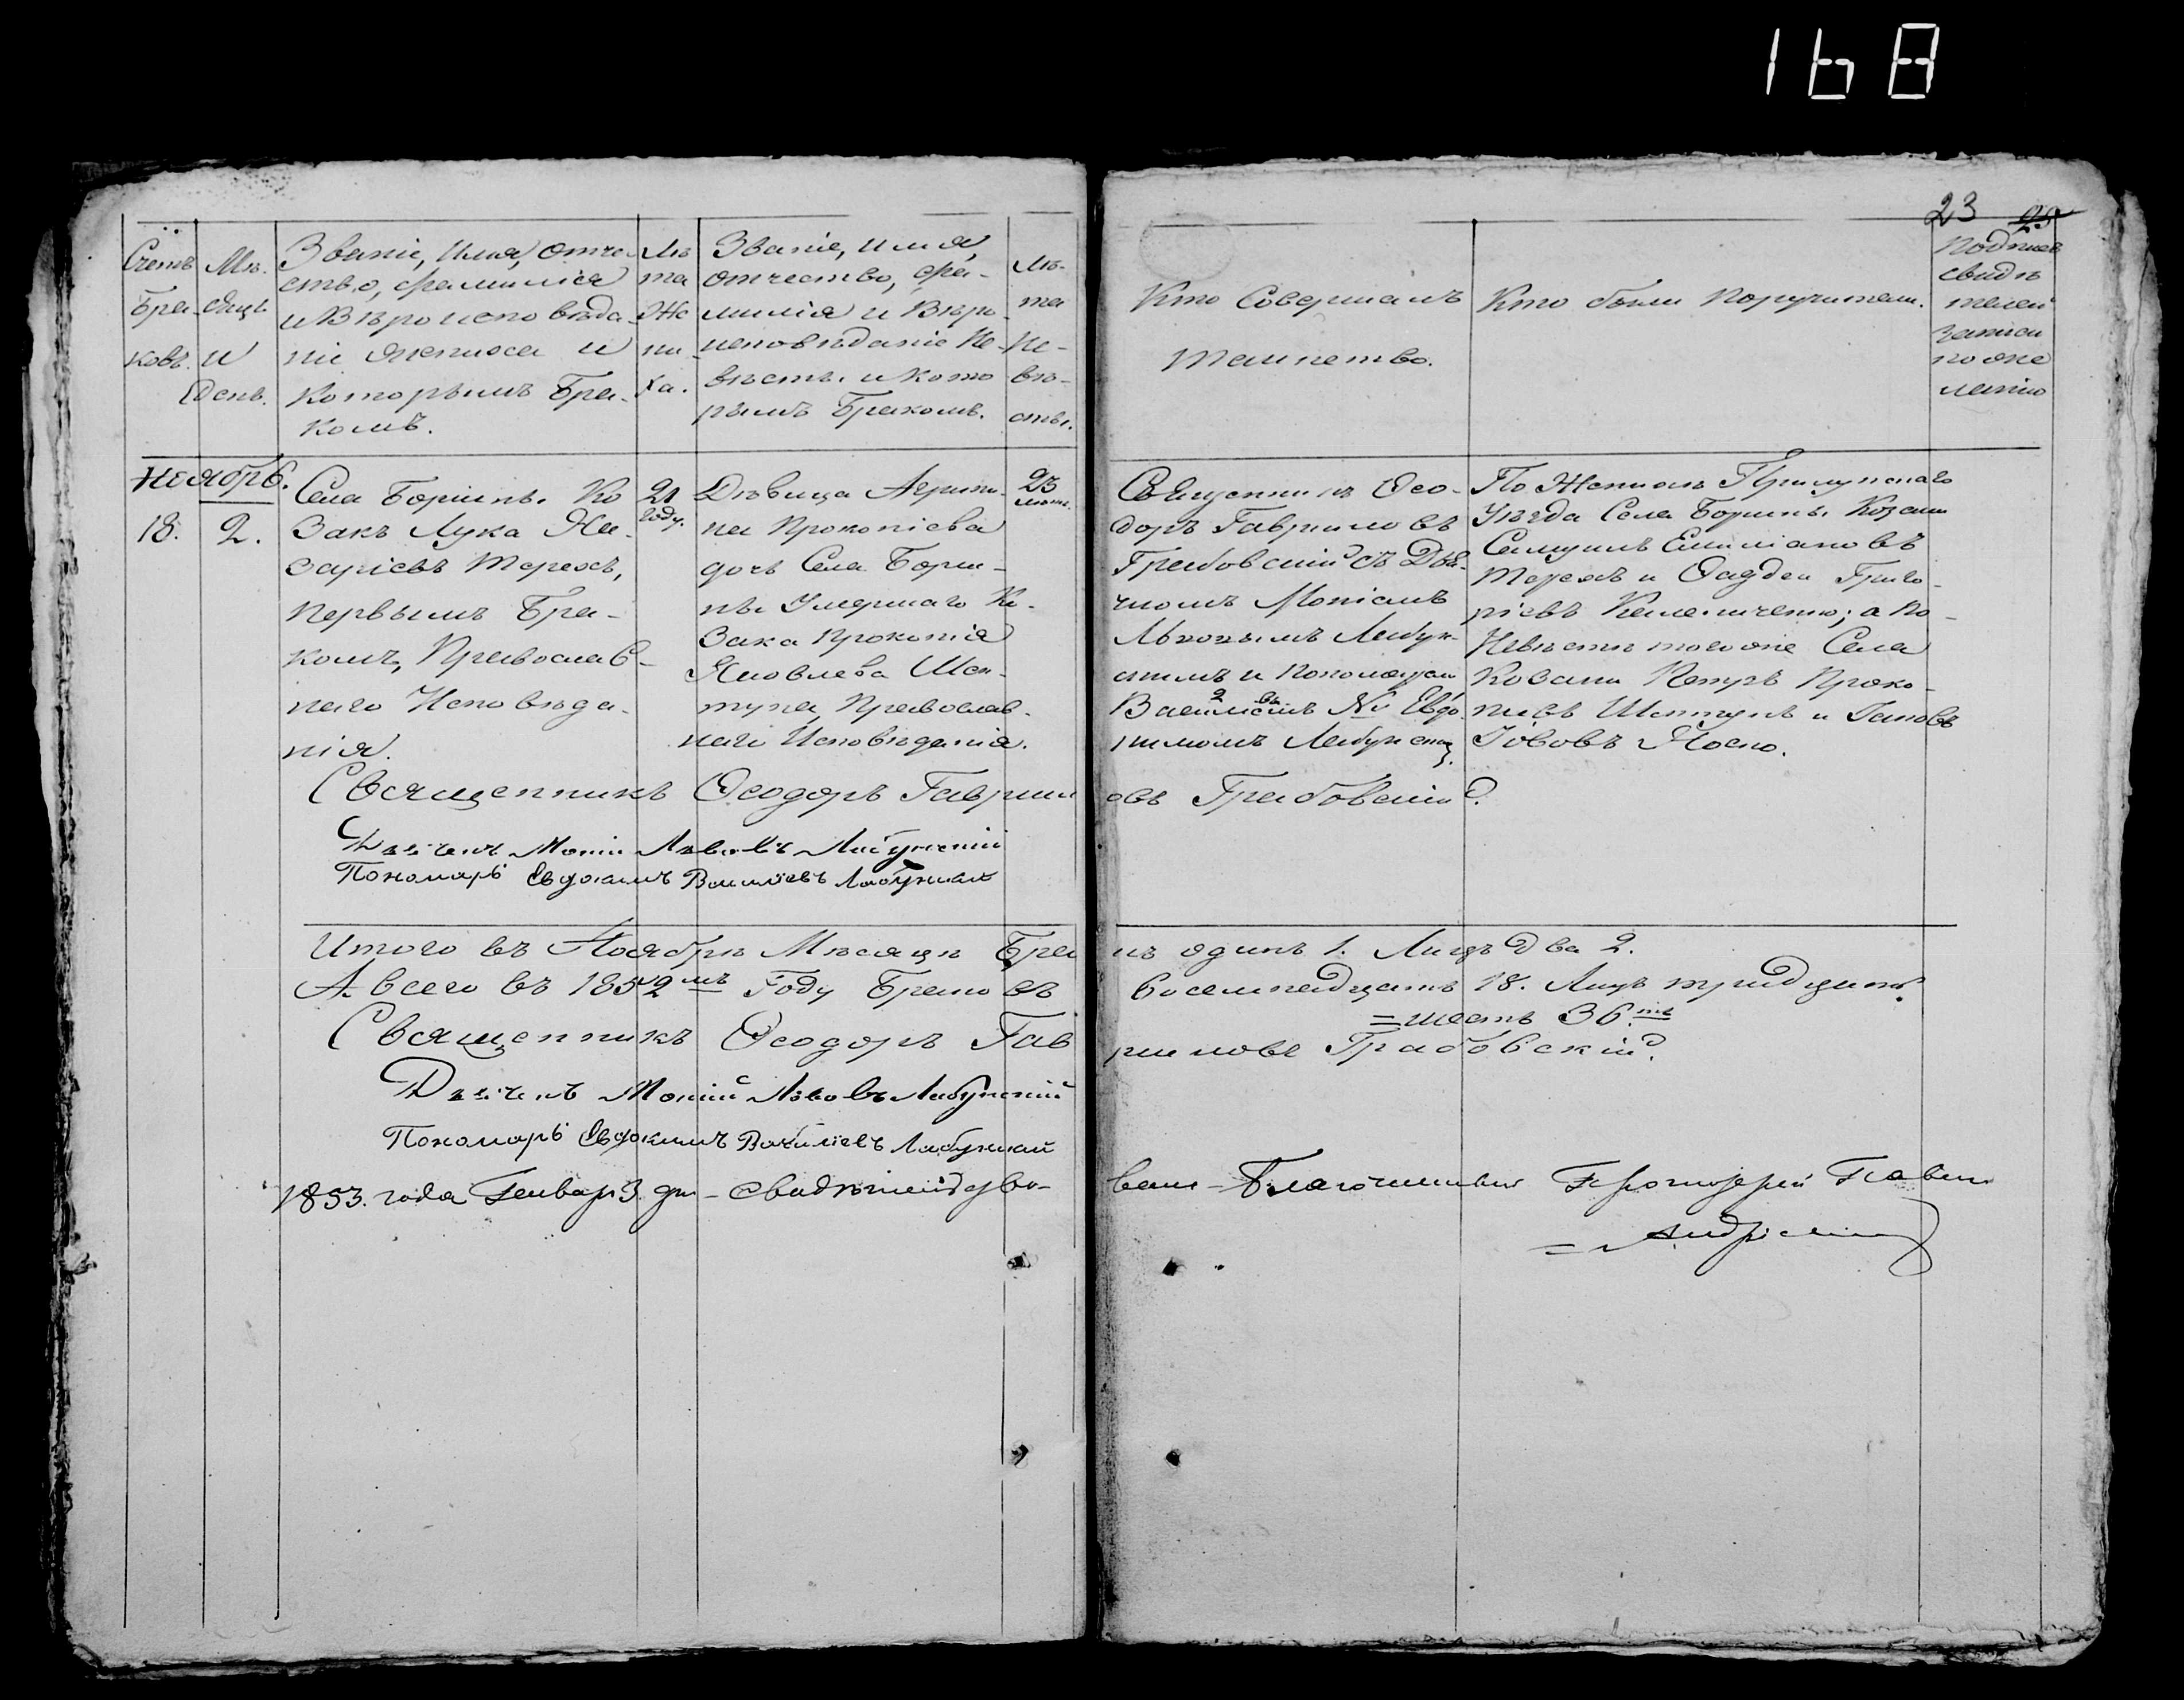 168
23 28
Счетъ
Бра-
ковъ.
Мѣ-
сяцъ
и
День.
Званіе, Имя, Отче-
ство, фамилія
и Вѣроисповѣда-
ніе Жениха и
Которымъ Бра-
комъ.
Лѣ
та
Же
ни
ха.
Званіе, имя,
отчество, фа-
милія и Вѣро
исповѣданіе Не-
вѣсты. и кото
рымъ Бракомъ.
Лѣ-
та
Не-
вѣ-
сты.
Кто Совершалъ
Таинство.
Кто были Поручители.
Подписъ
свидѣ
телей
записи
по же
ланію
Ноябрь.
18.
2.
Села Боршны. Ко
закъ Лука На-
заріевъ Терехъ,
первымъ Бра-
комъ, Православ-
наго Исповѣда-
нія.
21
году.
Дѣвица Агрипи-
на Прокопіева
дочь Села Борш-
ны Умершаго Ко-
зака Прокопія
Яковлева Шеп-
туна, Православ-
наго Исповѣданія.
23
лѣтъ.
Священникъ Ѳео-
доръ Гавриловъ
Грабовскій съ Дья-
чкомъ Мокіемъ
Львовымъ Лабун-
скимъ и Пономаремъ
Василіевымъ Евдо-
кимомъ Лабунскимъ.
По Женихѣ Прилуцкаго
Уѣзда Села Боршны. Козаки
Самуилъ Емиліановъ
Терехъ и Фаддей Григо-
ріевъ ; а по
Невѣстѣ того же Села
Козаки Петръ Проко-
піевъ Шептунъ и Іаковъ
Іововъ Носко.
Священникъ Ѳеодоръ Гаврил
овъ Грабовскій.
Дьячекъ Мокій Львовъ Лабунский
Пономарь Евдокимъ Василіевъ Лабунский
Итого въ Ноябрѣ Мѣсяцѣ Бра
къ одинъ 1. Лицъ Два 2.
А всего въ 1852мъ Году Браковъ
восемнадцать 18. Лицъ тридцать
= шесть 36.ть
Священникъ Ѳеодоръ Гав
риловъ Грабовскій.
Дьячекъ Мокій Львовъ Лабунский
Пономарь Евдокимъ Василіевъ Лабунский
1853. года Генваря 3 дня - свидѣтельство-
валъ - Благочинный Протоіерей Павелъ
=